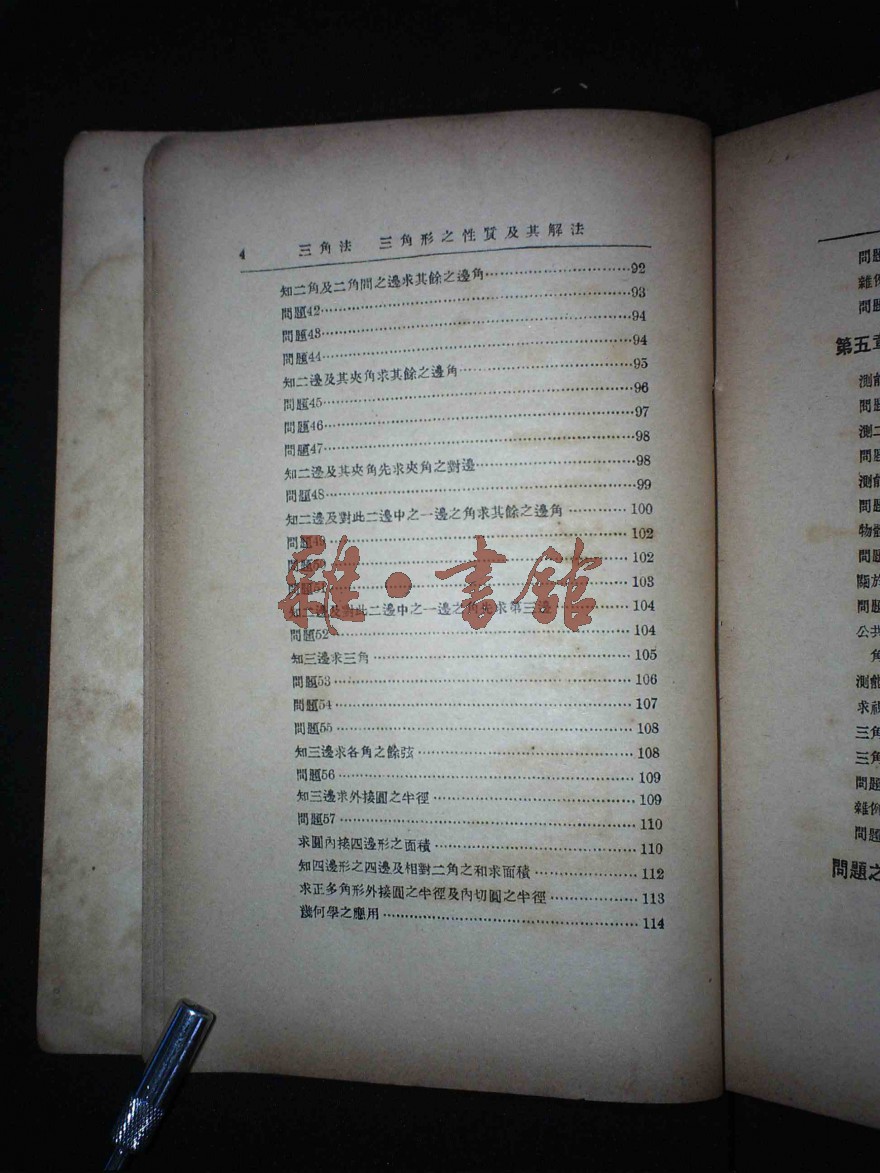 4 三角法 三角形之性質及其解法
知二角及二角間之邊求其餘之邊角……92
問題42……93
問題43……94
問題44……94
知二邊及其夾角求其餘之邊角……95
問題45……96
問題46……97
問題47……98
知二邊及其夾角先求夾角之對邊……98
問題48……99
知二邊及對此二邊中之一邊之角求其餘之邊角……100
問題49……102
問題……102
問題51……103
知二邊及對此二邊中之一邊之角先求第三邊……104
問題52……104
知三邊求三角……105
問題53……106
問題54……107
問題55……108
知三邊求各角之餘弦……108
問題56……109
知三邊求外接圓之半徑……109
問題57……110
求圓內接四邊形之面積……110
知四邊形之四邊及相對二角之和求面積……112
求正多角形外接圓之半徑及內切圓之半徑……113
幾何學之應用……114
雜·書館
問題
雜例
問題
第五章
測
問題
測二
問題
測
問題
物體
問題
關於
問題
公共
角
測
求視
三角
三角
問題
雜例
問題
問題之